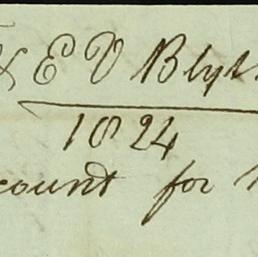 & E V Blyt
1824
count for